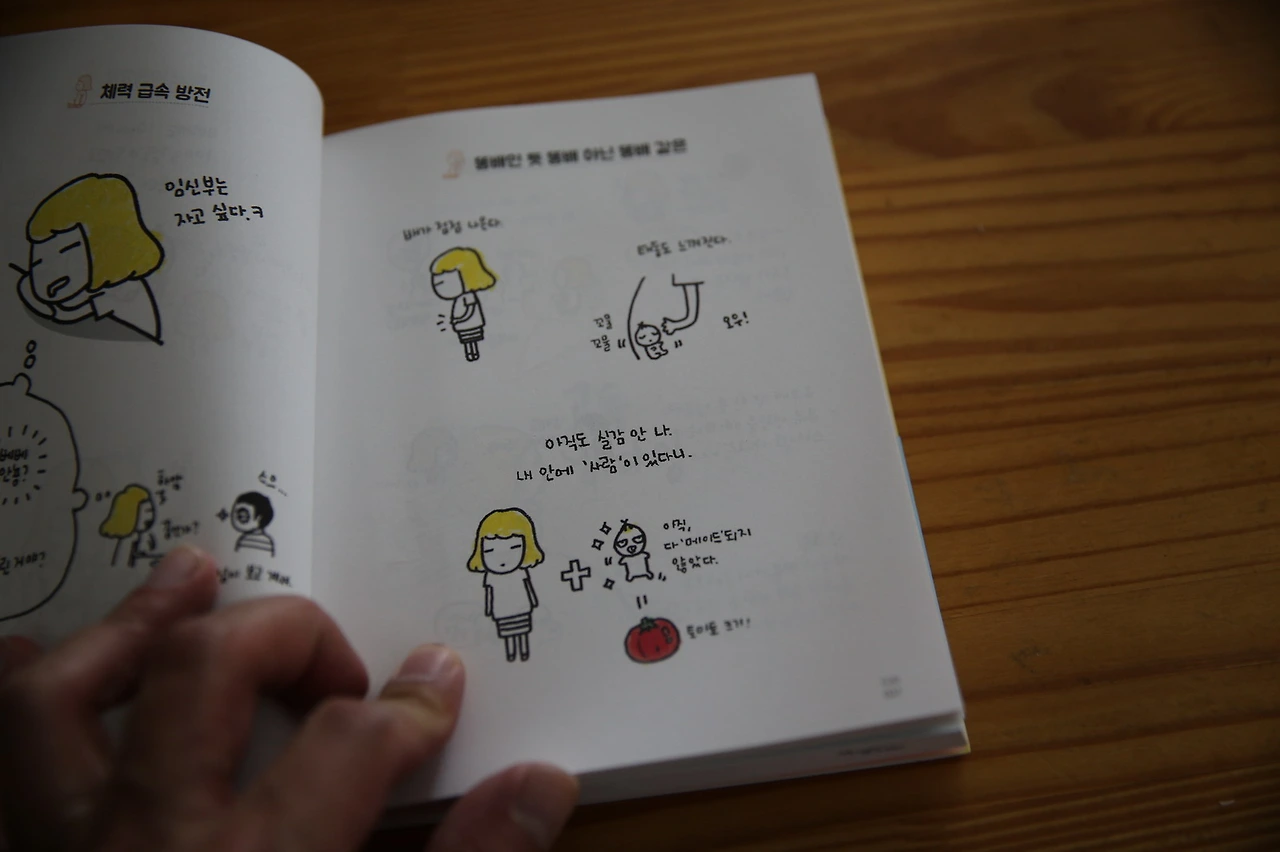 체력 급속 방전
임신부는
자고 싶다.ㅋ
안뇽?
똥배인 듯 똥배 아닌 똥배 같은
배가 점점 나온다.
태동도 느껴진다.
꼬물
꼬물
오우!
아직도 실감 안 나.
내 안에 '사람'이 있다니.
아직,
다 '메이드'되지
않았다.
토마토 크기!